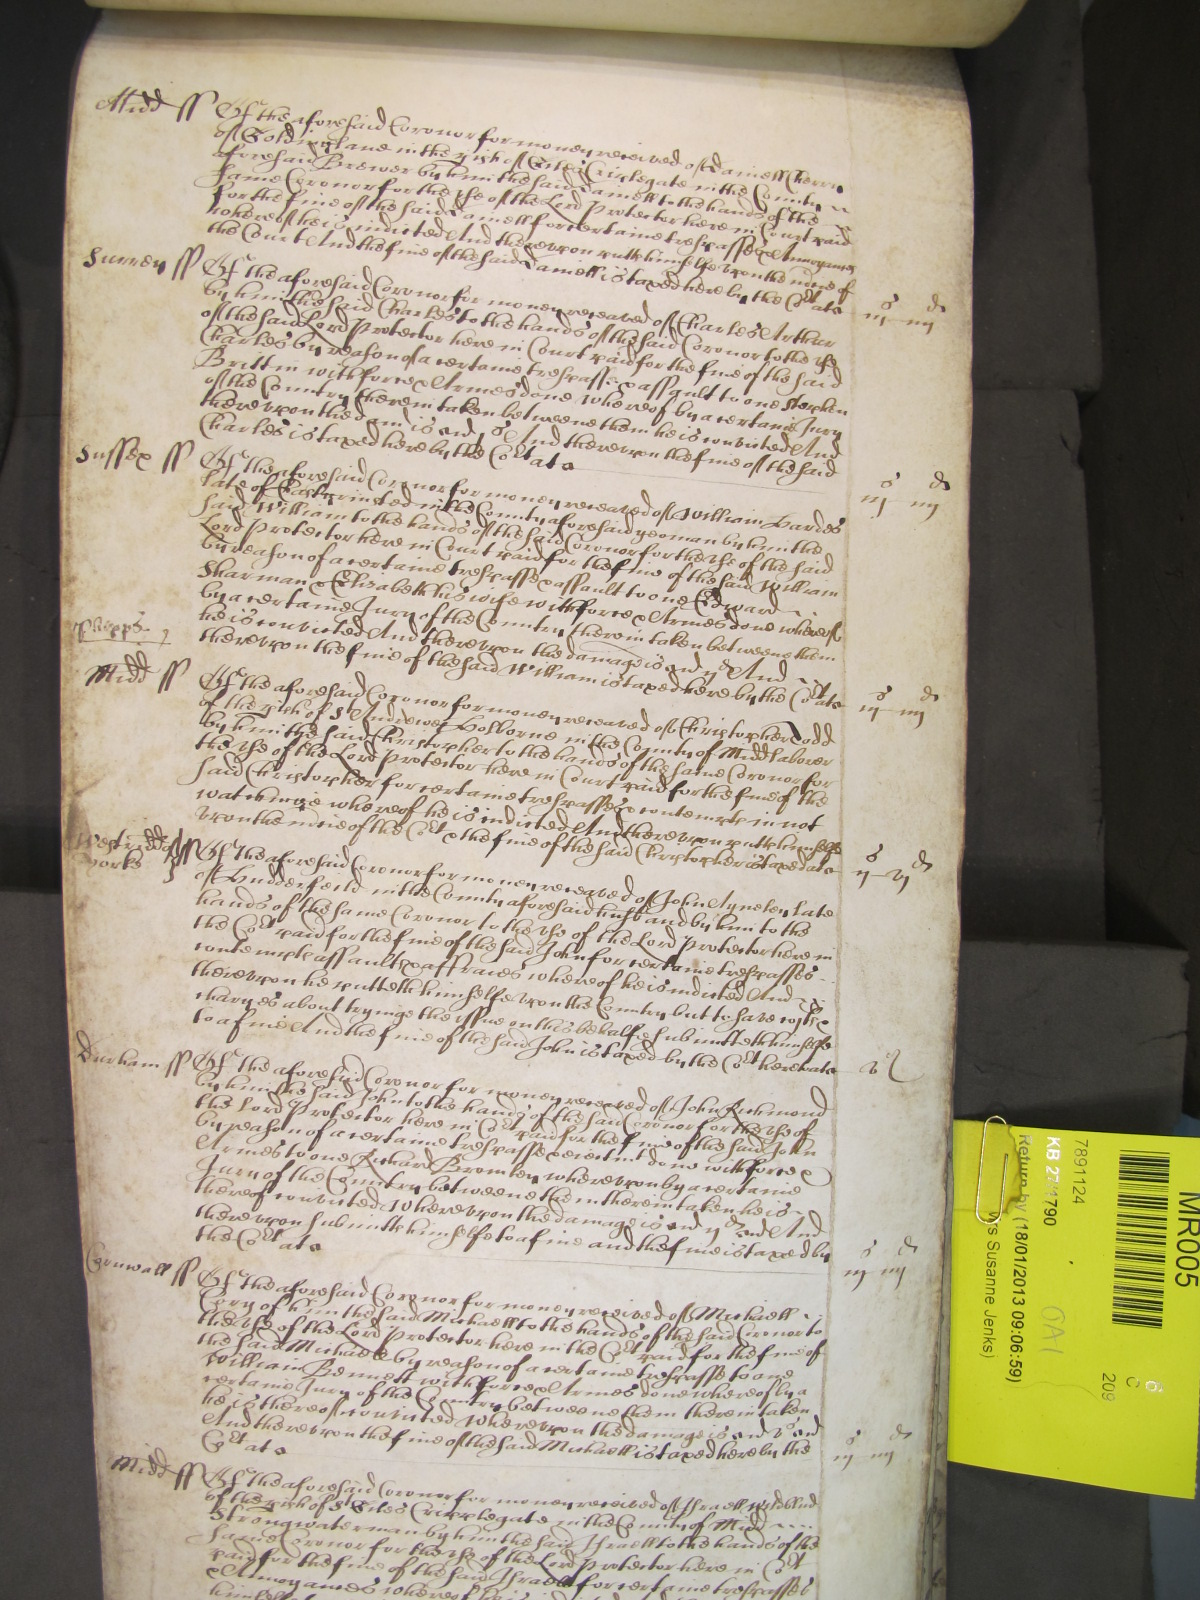 Midd ss Of the aforesaid Coronor for money received of Daniell Cherry
of Goldinglane in the pish of Giles Criplegate in the County
aforesaid Brewer by him the said Daniell to the hands of the
same Coronor for the use of the Lord Protector here in Court paid
for the fine of the said Daniell for certaine trespasses & Annoyances
whereof he is indicted And thereupon putts himselfe upon the mercy of
the Court And the fine of the said Daniell is taxed here by the Cort att
iijs iiijd
Surrey ss Of the aforesaid Coronor for money received of Charles Arthur
by him the said Charles to the hands of the said Coronor to the use
of the said Lord Protector here in Court paid for the fine of the said
Charles by reason of a certaine trespasse & assault to one Stephen
Brittin with force & Armes done whereof by a certaine Jury
of the Country therein taken betweene them he is convicted And
thereupon the And thereupon the fine of the said
Charles is taxed here by the Cort att
iijs iiijd
Sussex ss Of the aforesaid Coronor for money received of William
late of Eastgrinsted in the County aforesaid yeoman by him the
said William to the hands of the said Coronor for the use of the said
Lord Protector here in Court paid for the fine of the said William
by reason of a certaine trespasse & assault to one Edward
Sharman & Elizabeth his wife with force & Armes done whereof
by a certaine Jury of the Country therein taken betweene them
he is convicted And thereupon the damage is And
thereupon the fine of the said William is taxed here by the Cort att
iijs iiijd
Midd ss Of the aforesaid Coronor for money received of Christopher Todd
of the pish of St Andrewes Holborne in the County of Midd laborer
by him the said Christopher to the hands of the same Coronor for
the use of the Lord Protector here in Court paid for the fine of the
said Christopher for certaine trespasses & contempts in not
watchinge whereof he is indicted And thereupon putts himselfe
upon the mercie of the Cort & the fine of the said Christopher is taxed att
Westridd
Yorke ss Of the aforesaid Coronor for money received of John late
of Hudderfeild in the County aforesaid husband by him to the
hands of the same Coronor to the use of the Lord Protector here in
the Cort paid for the fine of the said John for certaine trespasses
contempts assaults & affraies whereof he is indicted And
thereupon he putteth himselfe upon the Country but to save costs &
charges about tryinge the issue on this behalfe submitteth himselfe
to a fine And the fine of the said John is taxed by the Cort here att
Durham ss Of the aforesaid Coronor for money received of John Richmond
by him the said John to the hands of the said Coronor for the use of
the Lord Protector here in Cort paid for the fine of the said John
by reason of a certaine trespasse & done with force &
Armes to one Richard Bromley whereupon by a certaine
Jury of the Country betweene them therein taken he is
thereof convicted Whereupon the damage is And
thereupon submitts himselfe to a fine and the fine is taxed by
the Cort att
iijs iiijd
Cornwall ss Of the aforesaid Coronor for money received of Michaell
by him the said Michaell to the hands of the said Coronor to
the use of the Lord Protector here in the Cort paid for the fine of
the said Michaell by reason of a certaine trespasse to one
William Bennett with force & Armes done whereof by a
certaine Jury of the Country betweene them therein taken
he is thereof convicted Whereupon the damage is
And thereupon the fine of the said Michaell is taxed here by the
Cort att
iijs iiijd
Midd ss Of the aforesaid Coronor for money received of Israell
of the pish of St Giles Cripplegate in the County of Midd
Strongwaterman by him the said Israell to the hands of the
same Coronor for the use of the Lord Protector here in Cort
paid for the fine of the said Israell for certaine trespasses
& Annoyances whereof he is
MR005
7891124
KB 27/1790
Return by (18/01/2013 09:06:59)
Susanne Jenks)
OA1
6
C
209